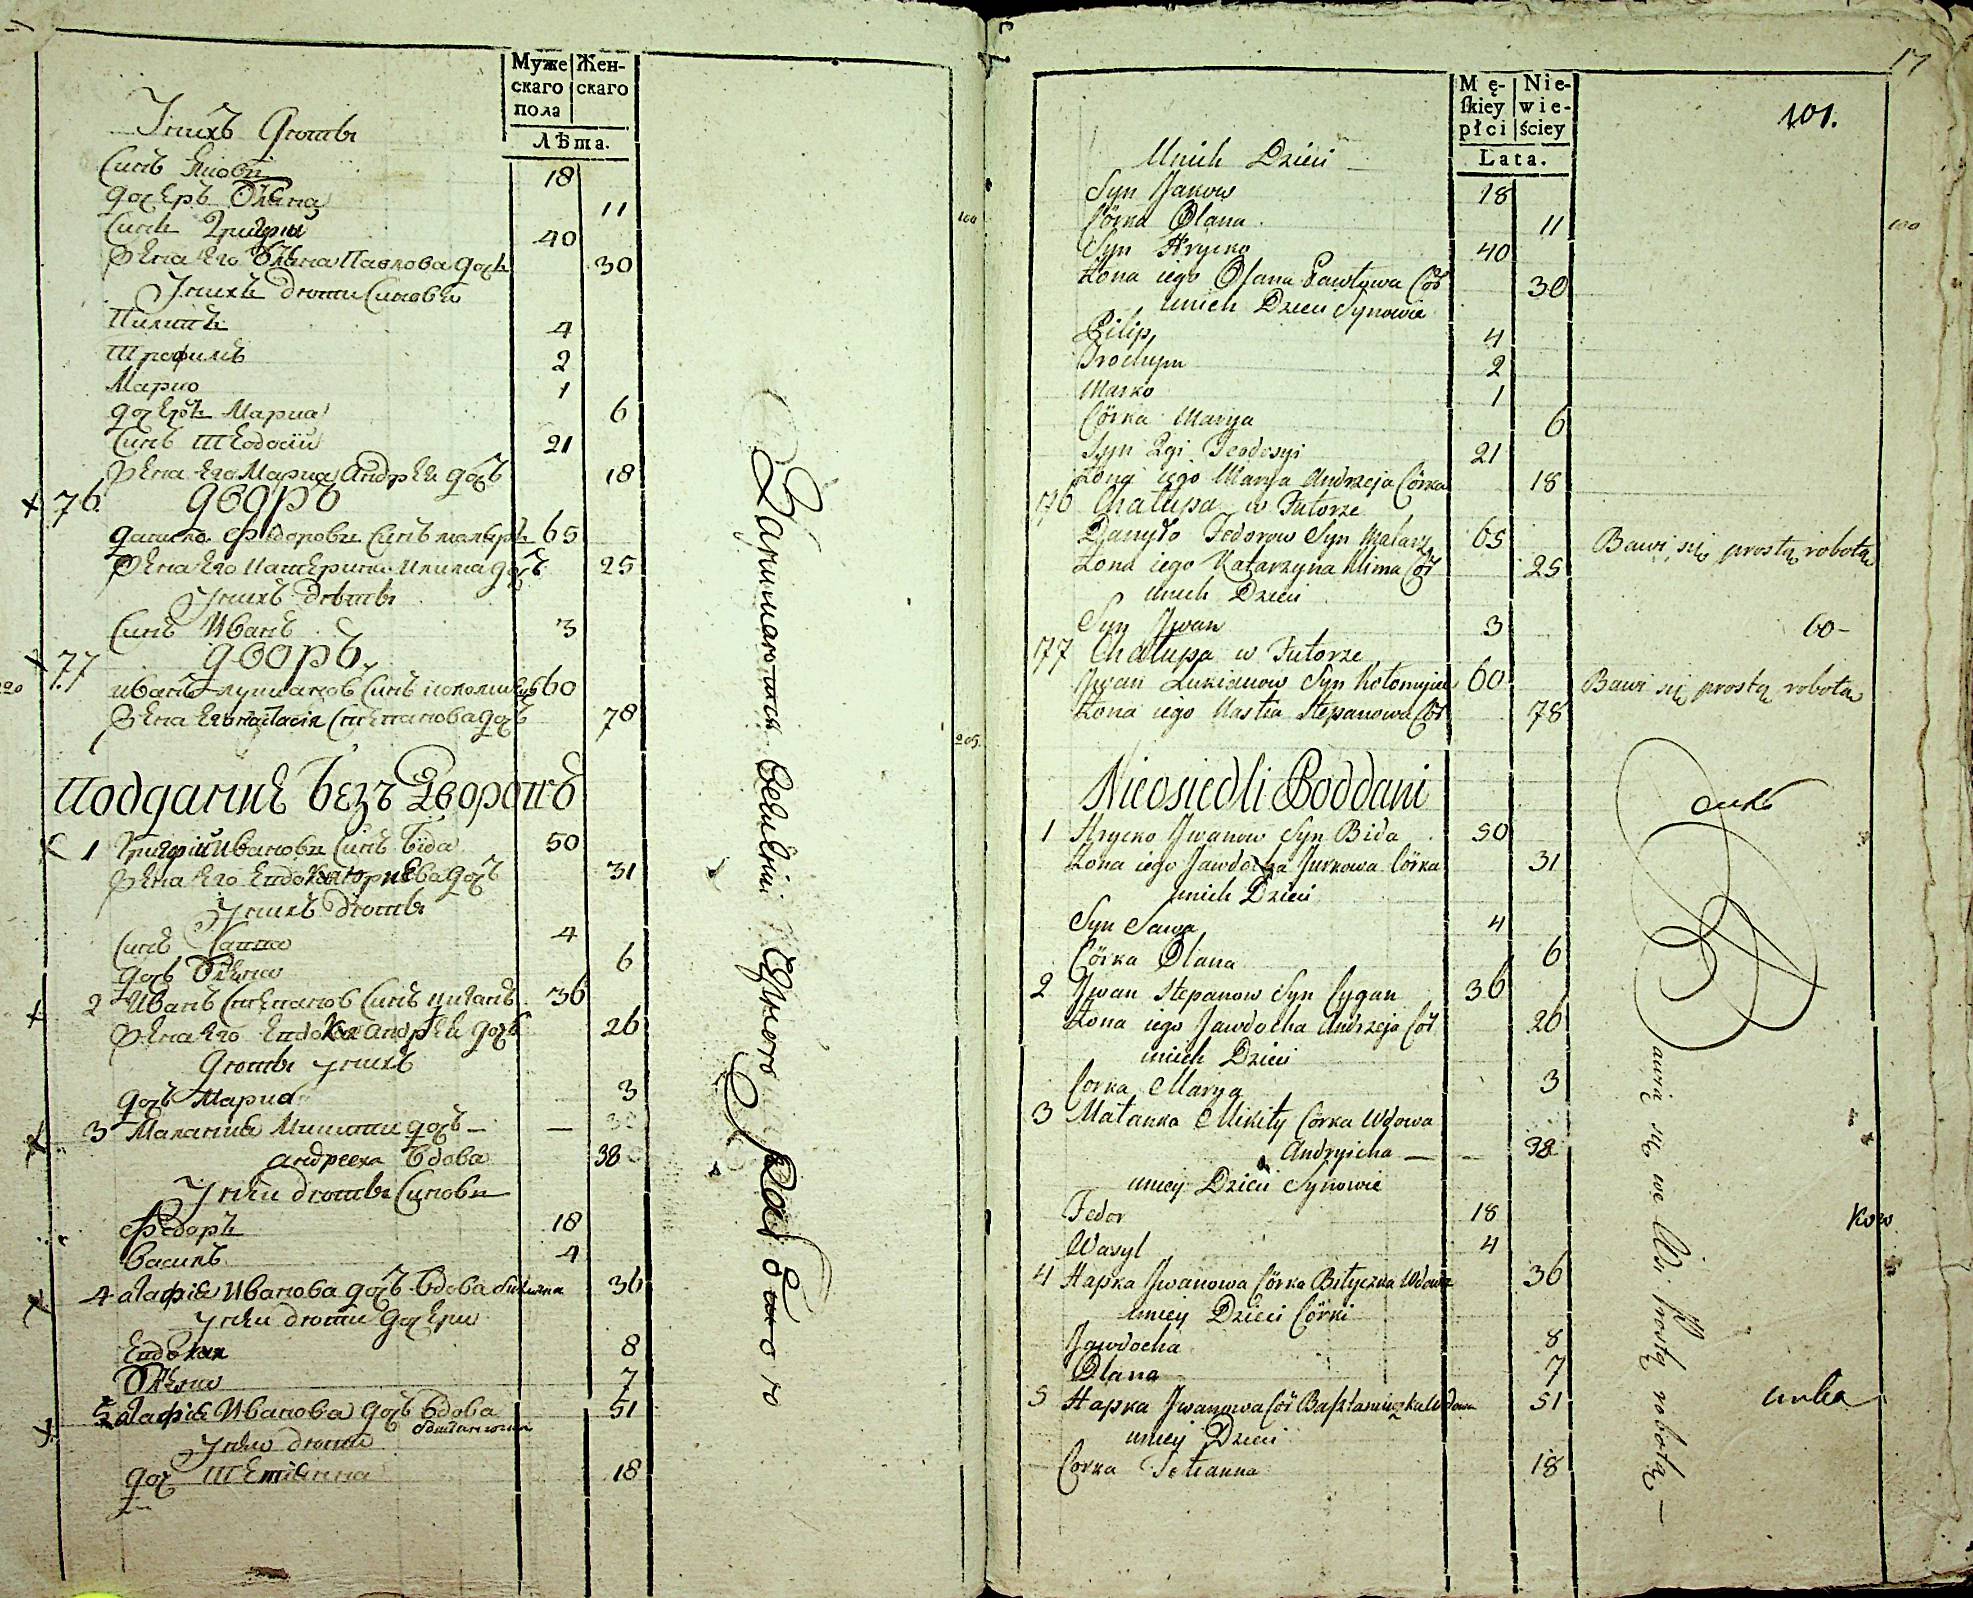 Муже
скаго
пола
Жен-
скаго
Лѣта.
Унихъ Дѣты
Синъ Яковъ 18
дочеръ Олена 11
Синъ Григри 40
Жена его Олена Павлова дочь 30
Унихъ дѣти Синовѣ
Пилипъ 4
Трофимъ 2
Марко 1
дочеръ Мариа 6
Синъ Теодосій 21
Жена его Мариа Андрѣи дочъ 18
76 дворъ
данило Федоровъ Синъ маляръ 65
Жена его Катерина Клима дочъ 25
Унихъ Дѣты
Синъ Иванъ 3
77 дворъ
иванъ лукиановъ Синъ коломиецъ 60
Жена его Настасія Степанова дочъ 78
Подданніе безъ Дворовъ
1 Григрій Ивановъ Синъ Біда 50
Жена его Евдокия Юркова дочъ 31
Унихъ Дѣты
Синъ Савва 4
дочъ Олена 6
2 Иванъ Степановъ Синъ циганъ 36
Жена его Евдокия андрѣи дочъ 26
Дѣты унихъ
дочъ Мариа 3
3 Маланка Микити дочъ —
андреева вдова 38
У неи дѣты Синовѣ
Федоръ 18
Василь 4
4 агафія Иванова дочъ вдова 36
у неи дѣти дочери
Евдокия 8
Олена 7
5 агафія Иванова дочъ вдова 51
у неи дѣти
доч Тетіанна 18
Занимаются
Работою
100
205
220
Mę-
skiey
płci
Nie-
wie-
ściey
Lata.
17
101.
100
Unich Dzieci
Syn Jakow 18
Córka Olana 11
Syn Hrycko 40
Żona iego Olana Pawłowa Cór 30
unich Dzieci Synowie
Pilip 4
Trochym 2
Marko 1
Córka Marya 6
Syn 2gi Teodosyi 21
Żona iego Marya Andrzeja Córka 18
76 Chałupa w Futorze
Danyło Fedorow Syn Malarz 65 Bawi się prostą robotą
Żona iego Katarzyna Klima Cór 25
unich Dzieci
Syn Jwan 3
60-
77 Chałupa w Futorze
Jwan Lukianow Syn Kołomyiec 60 Bawi się prostą robotą
Żona iego Nastia Stepanowa Cór 78
Nieosiedli Poddani
1 Hrycko Jwanow Syn Bida 50
Żona iego Jawdocha Jurkowa Córka 31
unich Dzieci
Syn Sawa 4
Córka Olana 6
2 Jwan Stepanow Syn Cygan 36
Żona iego Jawdocha Andrzeja Cór 26
unich Dzieci
Corka Marya 3
3 Małanka Mikity Corka Wdowa
Andryicha — 38
uniey Dzieci Synowie
Fedor 18
Wasyl 4
4 Hapka Jwanowa Córka Wdowa 36
uniey Dzieci Córki
Jawdocha 8
Olana 7
5 Hapka Jwanowa Cór Wdowa 51
uniey Dzieci
Corka Tetianna 18
Bawią się we Wsi prostą robotą —